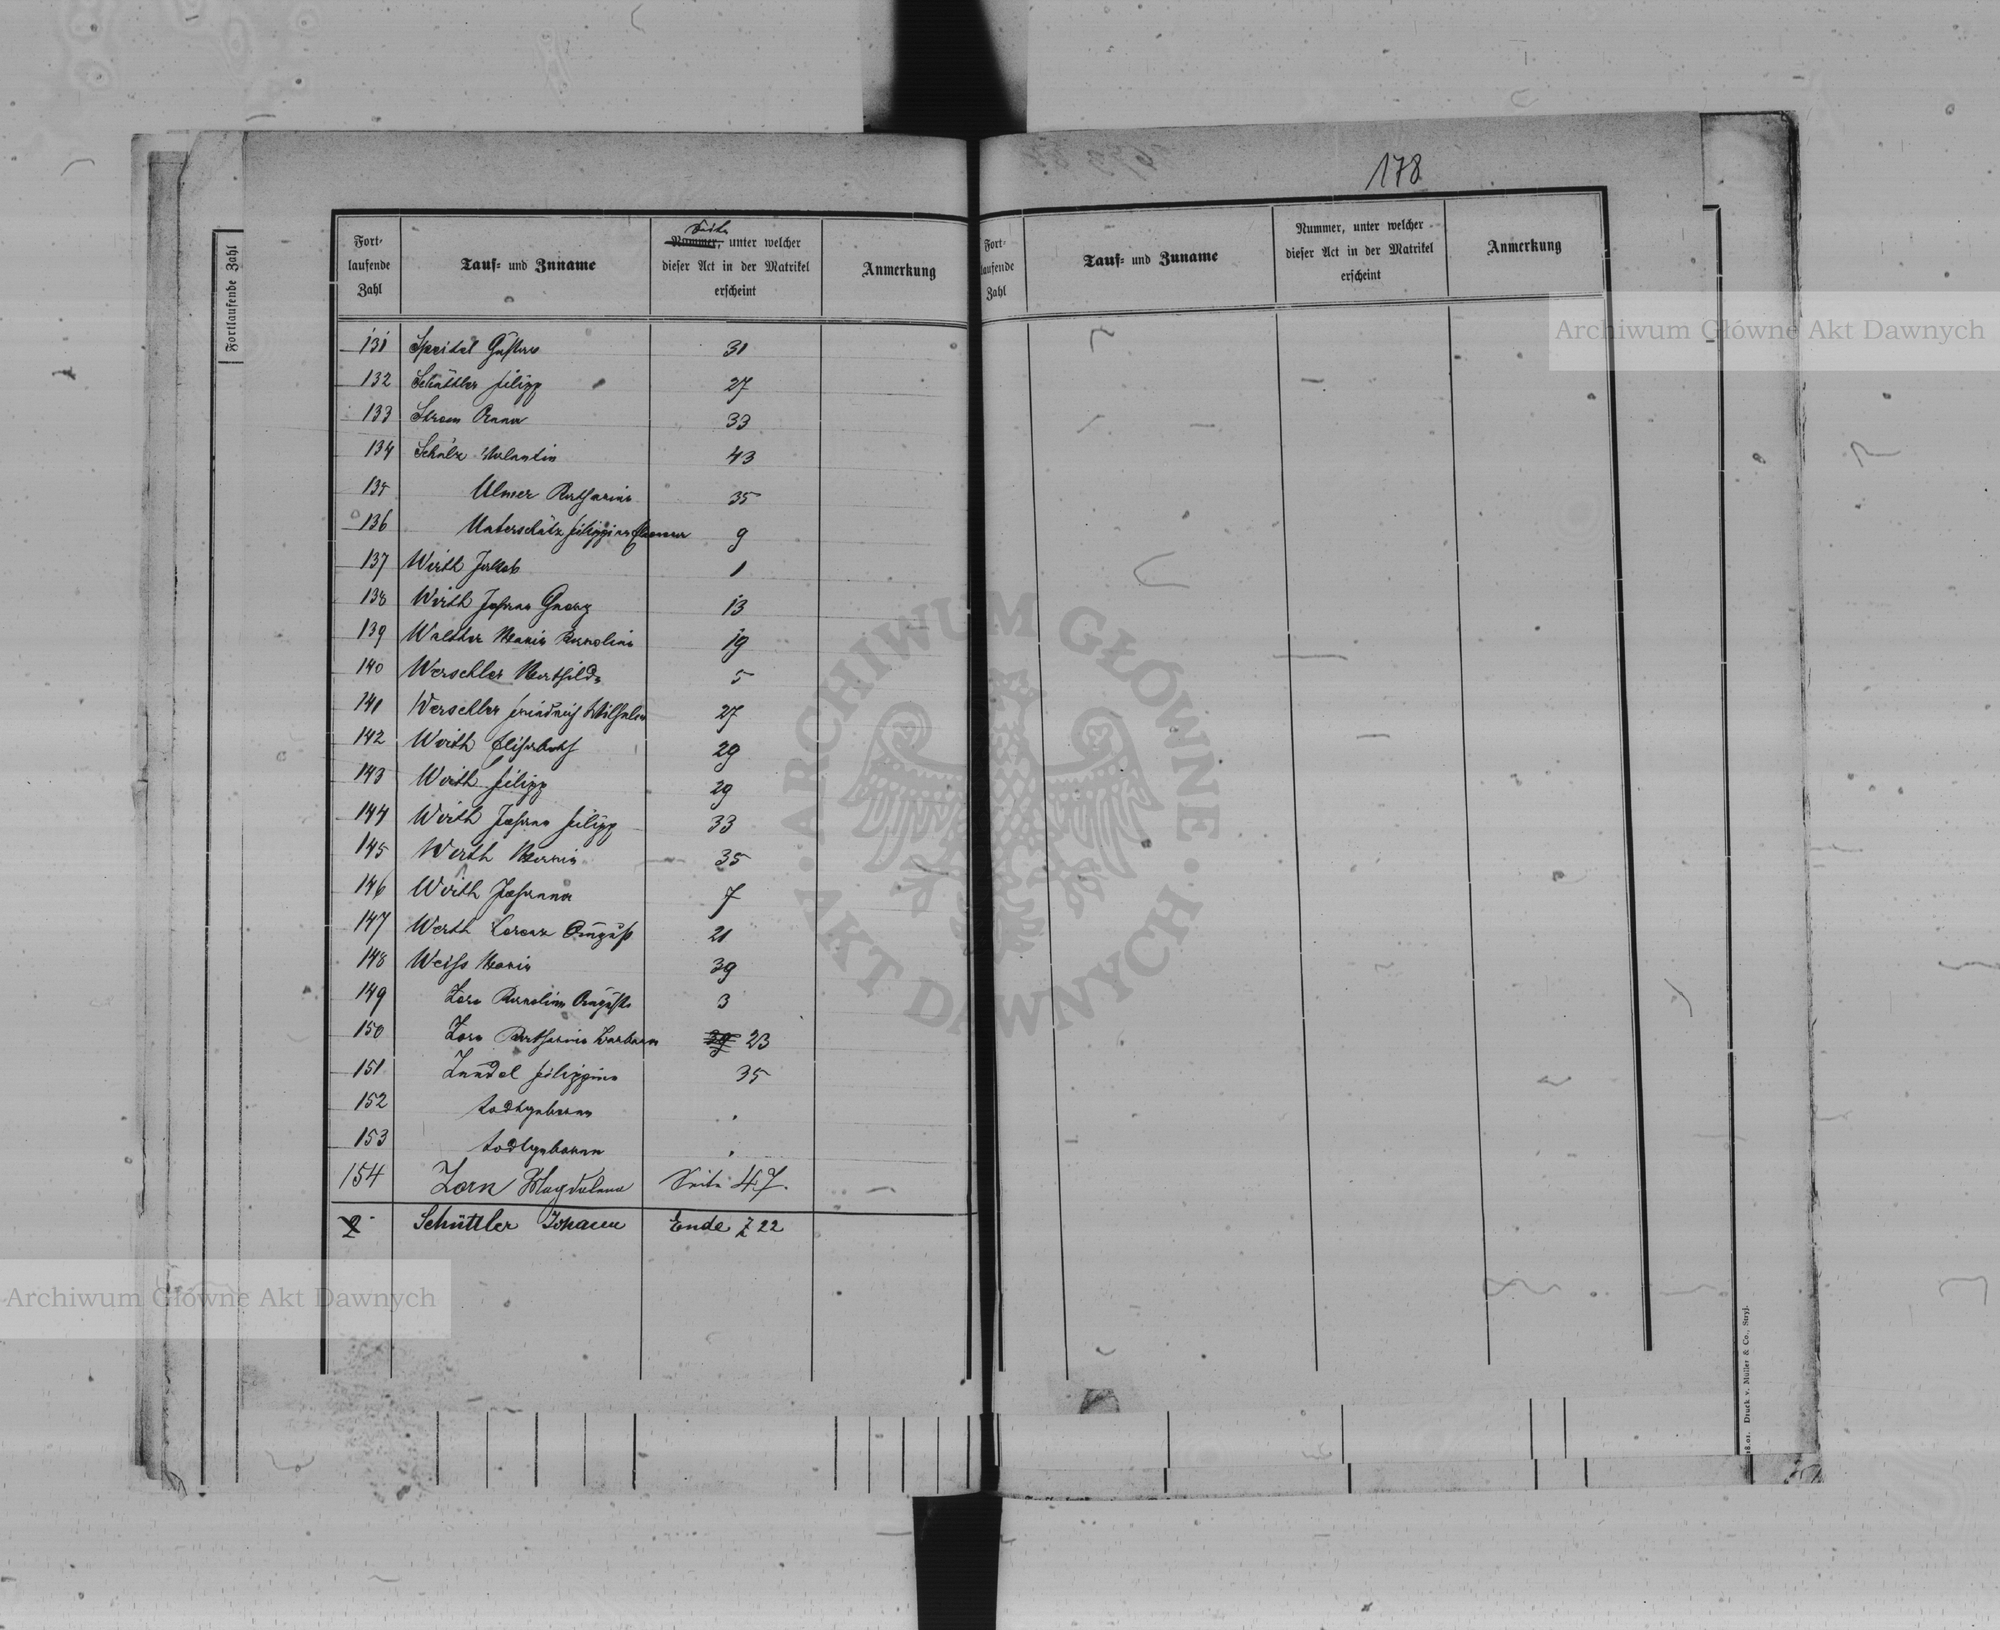 178
Fortlaufende Zahl
Fort-
laufende
Zahl
Tauf= und Zuname
Seite
Nummer, unter welcher
dieser Act in der Matrikel
erscheint
Anmerkung
131 Speidel Gustav 31
132 Schüttler Filipp 27
133 Anna 33
134 Schulz Valentin 43
135 Ulmer Katharina 35
136 Unterschütz Filippine Eleonora 9
137 Wirth Jakob 1
138 Wirth Johann Georg 13
139 Walther Maria Karolina 19
140 Werschler Mathilde 5
141 Werschler Friedrich Wilhelm 27
142 Wirth Elisabeth 29
143 Wirth Filipp 29
144 Wirth Johann Filipp 33
145 Werth Maria 35
146 Wirth Johanna 7
147 Werth Lorenz August 21
148 Weiss Maria 39
149 Zorn Karolina Augusta 3
150 Zorn Katharina Barbara 39 23
151 Zundel Filippina 35
152 todtgeboren
153 todtgeboren
154 Zorn Magdalena Seite 47.
2 Schüttler Johann Ende Z 22
Fort-
laufende
Zahl
Tauf= und Zuname
Nummer, unter welcher
dieser Act in der Matrikel
erscheint
Anmerkung
Druck v. Müller & Co., Stryj.
Archiwum Główne Akt Dawnych
Archiwum Główne Akt Dawnych
ARCHIWUM GŁÓWNE · AKT DAWNYCH ·